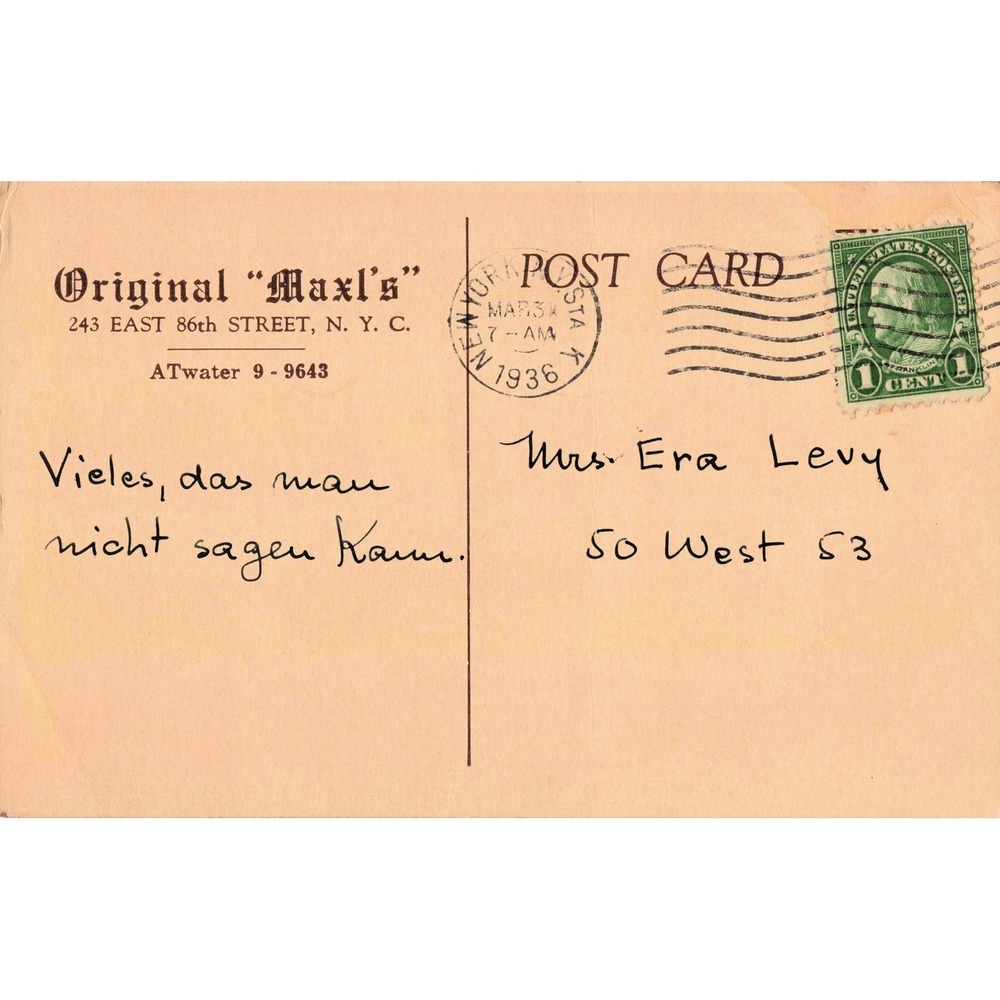 Original "Maxl's"
243 EAST 86th STREET, N. Y. C.
ATwater 9 - 9643
Vieles, das man
nicht sagen kann.
POST CARD
NEW YORK, N.Y. STA K
MAR 31
7 - AM
1936
UNITED STATES POSTAGE
FRANKLIN
1 CENT 1
Mrs. Era Levy
50 West 53